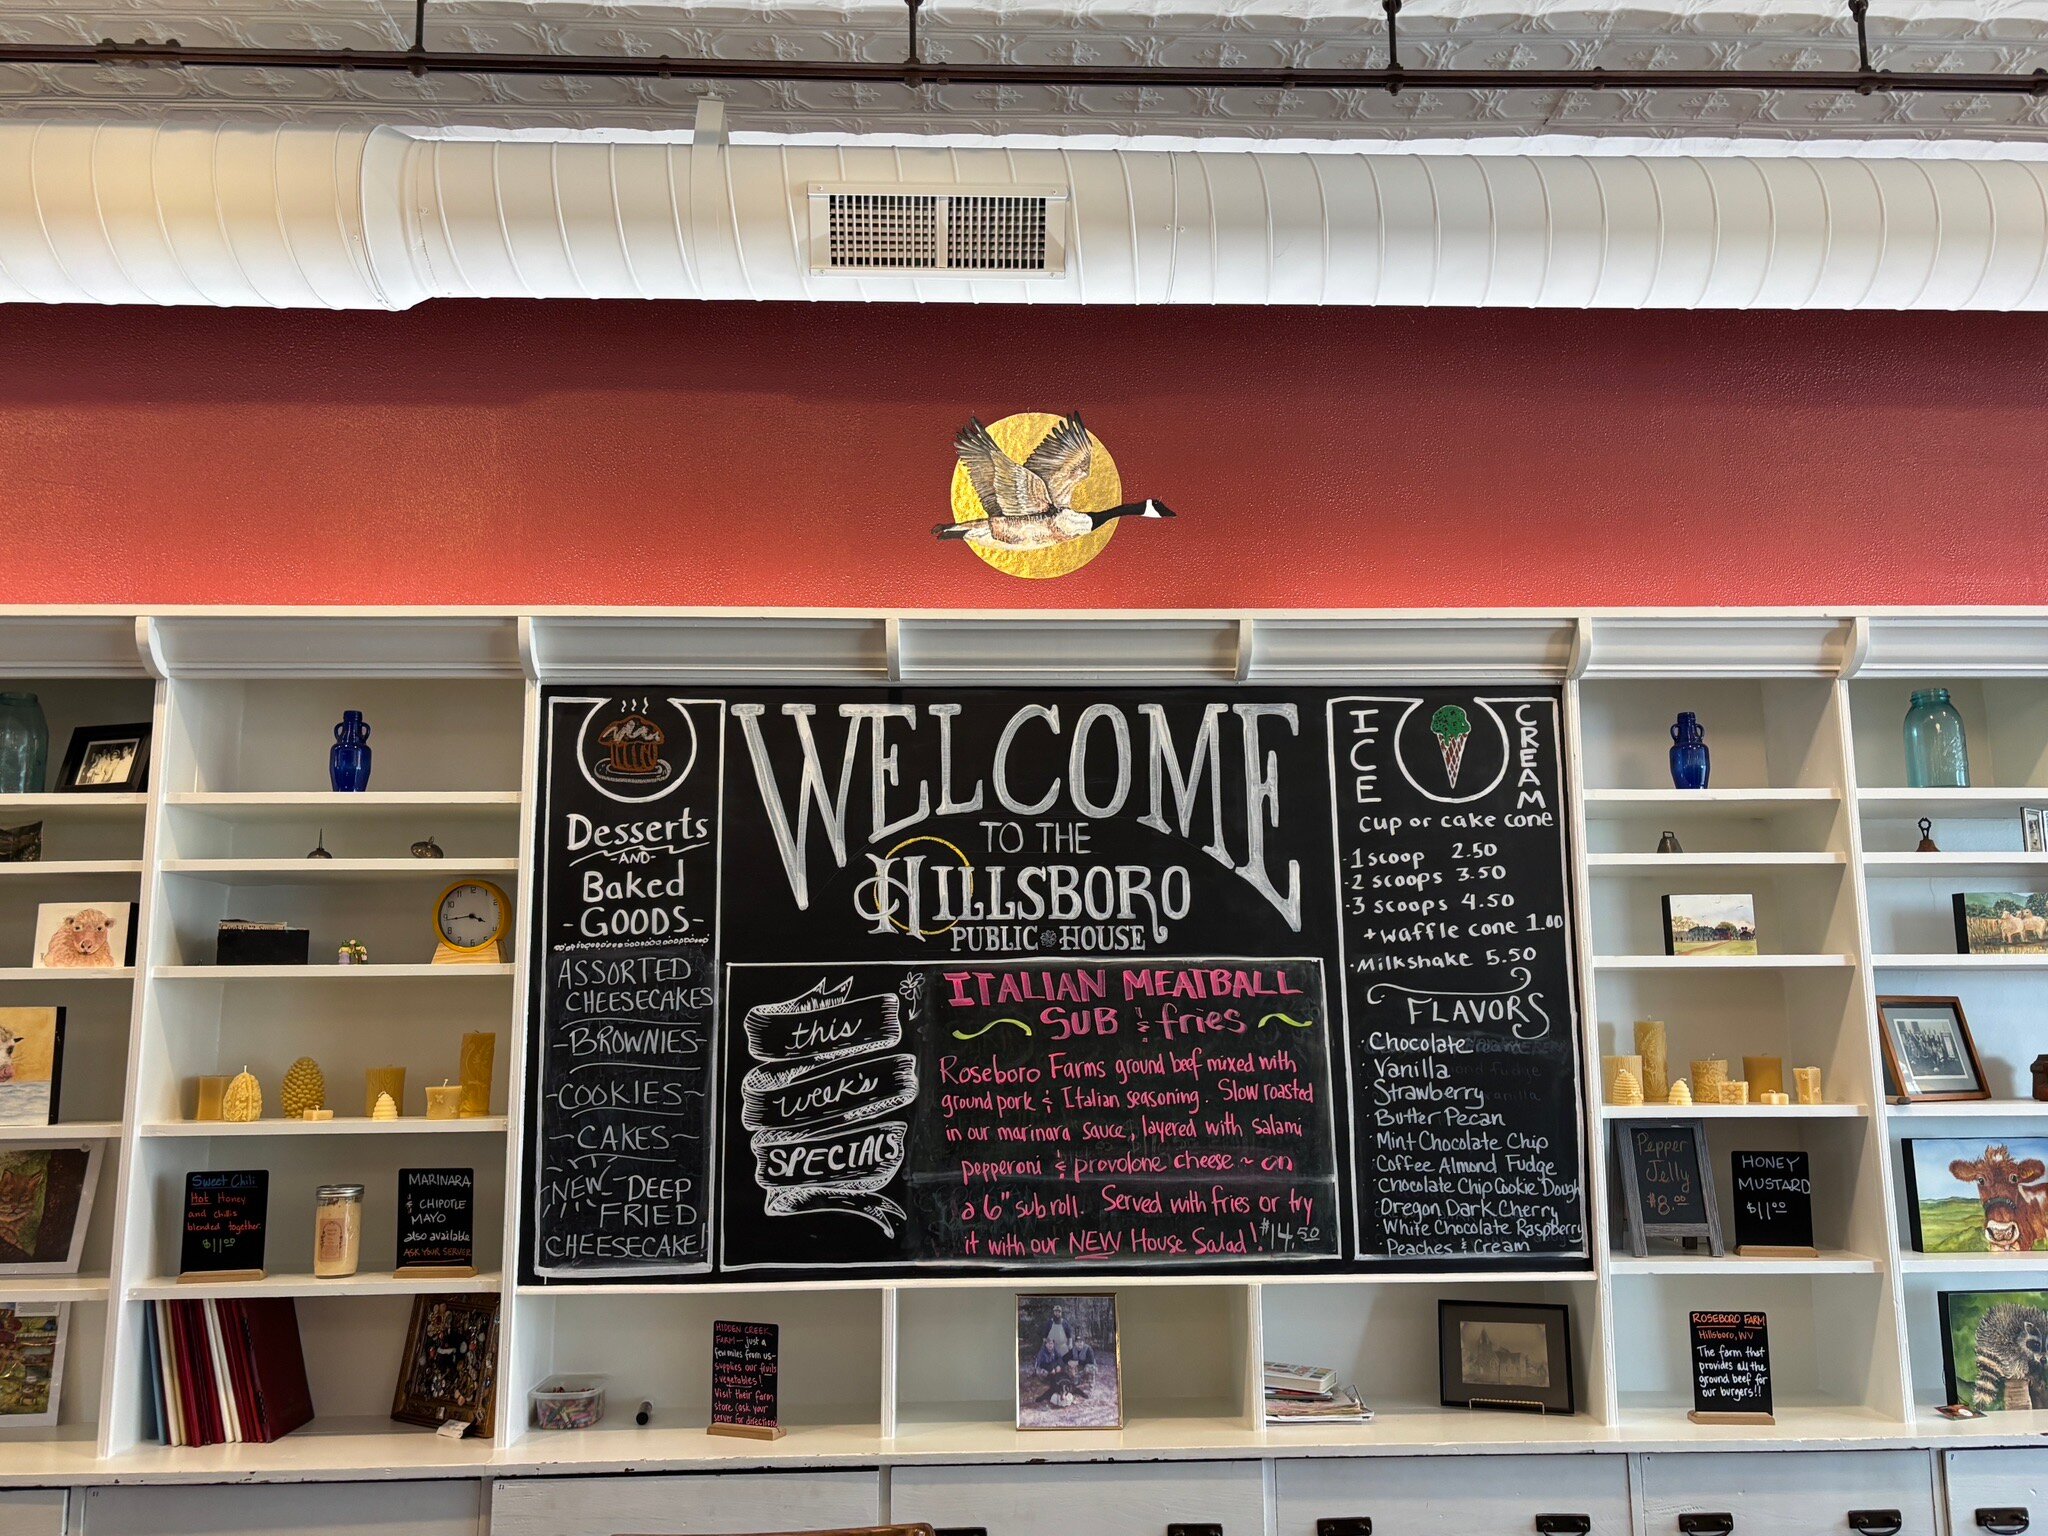 WELCOME
TO THE
HILLSBORO
PUBLIC HOUSE
Desserts
-AND-
Baked
-GOODS-
ASSORTED
CHEESECAKES
-BROWNIES-
-COOKIES-
-CAKES-
NEW - DEEP
FRIED
CHEESECAKE!
this
week's
SPECIALS
ITALIAN MEATBALL
SUB & fries
Roseboro Farms ground beef mixed with
ground pork & Italian seasoning. Slow roasted
in our marinara sauce, layered with salami
pepperoni & provolone cheese ~ on
a 6" sub roll. Served with fries or try
it with our NEW House Salad! $14.50
ICE
CREAM
cup or cake cone
·1 scoop 2.50
·2 scoops 3.50
·3 scoops 4.50
+ waffle cone 1.00
·Milkshake 5.50
FLAVORS
·Chocolate
·Vanilla
·Strawberry
·Butter Pecan
·Mint Chocolate Chip
·Coffee Almond Fudge
·Chocolate Chip Cookie Dough
·Oregon Dark Cherry
·White Chocolate Raspberry
·Peaches & Cream
Sweet Chili
Hot Honey
and chilis
blended together.
$11.00
MARINARA
& CHIPOTLE
MAYO
also available
ASK YOUR SERVER
Pepper
Jelly
$8.00
HONEY
MUSTARD
$11.00
HIDDEN CREEK
FARM — just a
few miles from us—
supplies our fruits
& vegetables!
Visit their farm
store (ask your
server for directions)
ROSEBORO FARM
Hillsboro, WV
The farm that
provides all the
ground beef for
our burgers!!